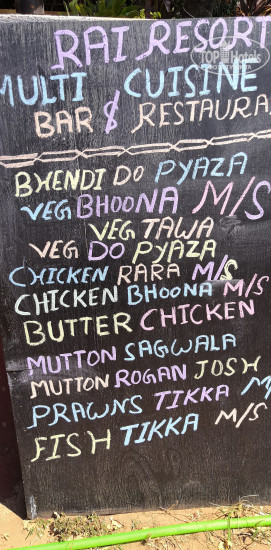 RAI RESORT
MULTI CUISINE
BAR & RESTAURA
BHENDI DO PYAZA
VEG BHOONA M/S
VEG TAWA
VEG DO PYAZA
CHICKEN RARA M/S
CHICKEN BHOONA M/S
BUTTER CHICKEN
MUTTON SAGWALA
MUTTON ROGAN JOSH
PRAWNS TIKKA M
FISH TIKKA M/S